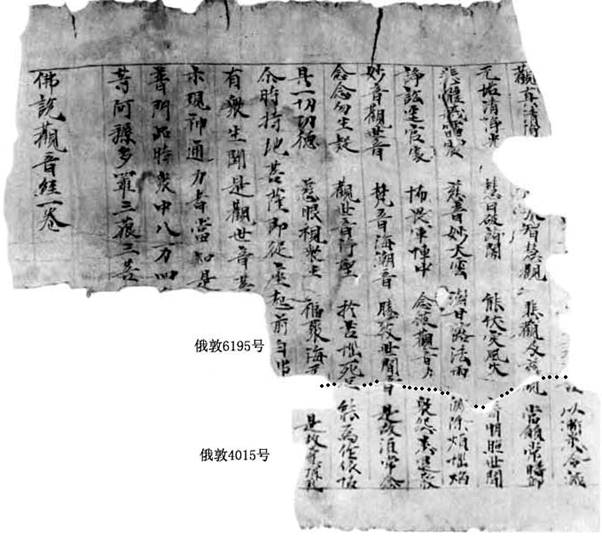 以漸悉令滅
觀真清淨 大智慧觀 悲觀及慈觀 常願常
无垢清淨光 慧日破諸闇 能伏災風火 普明照世間
悲體戒雷震 慈音妙大雲 澍甘露法雨 滅除煩惱焰
諍訟逕官處 怖畏軍陣中 念彼觀音力 衆怨悉退散
妙音觀世音 梵音海潮音 勝彼世間音 是故須常念
念念勿生疑 觀世音淨聖 於苦惱死厄 能為作依怙
具一切功德 慈眼視衆生 福聚海无 是故應頂礼
尒時持地菩薩即從座起前白
有衆生聞是觀世音菩
示現神通力者當知是
普門品時衆中八万四
等阿耨多羅三藐三菩
佛說觀音經一卷
俄敦6195号
俄敦4015号